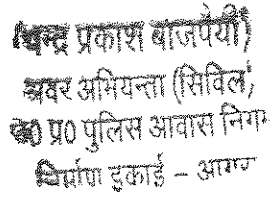 चन्द्र प्रकाश बाजपेयी)
अवर अभियन्ता (सिविल)
उ0 प्र0 पुलिस आवास निगम
निर्माण इकाई - आगरा